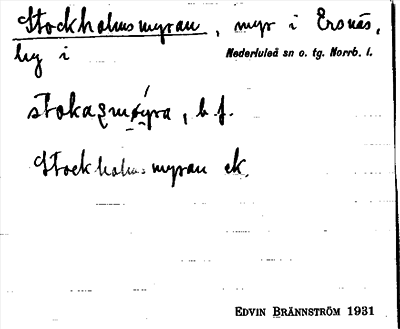 Stockholmsmyran, myr i Ersnäs,
by i Nederluleå sn o. tg. Norrb. l.
b.f.
Stockholmsmyran ek.
EDVIN BRÄNNSTRÖM 1931